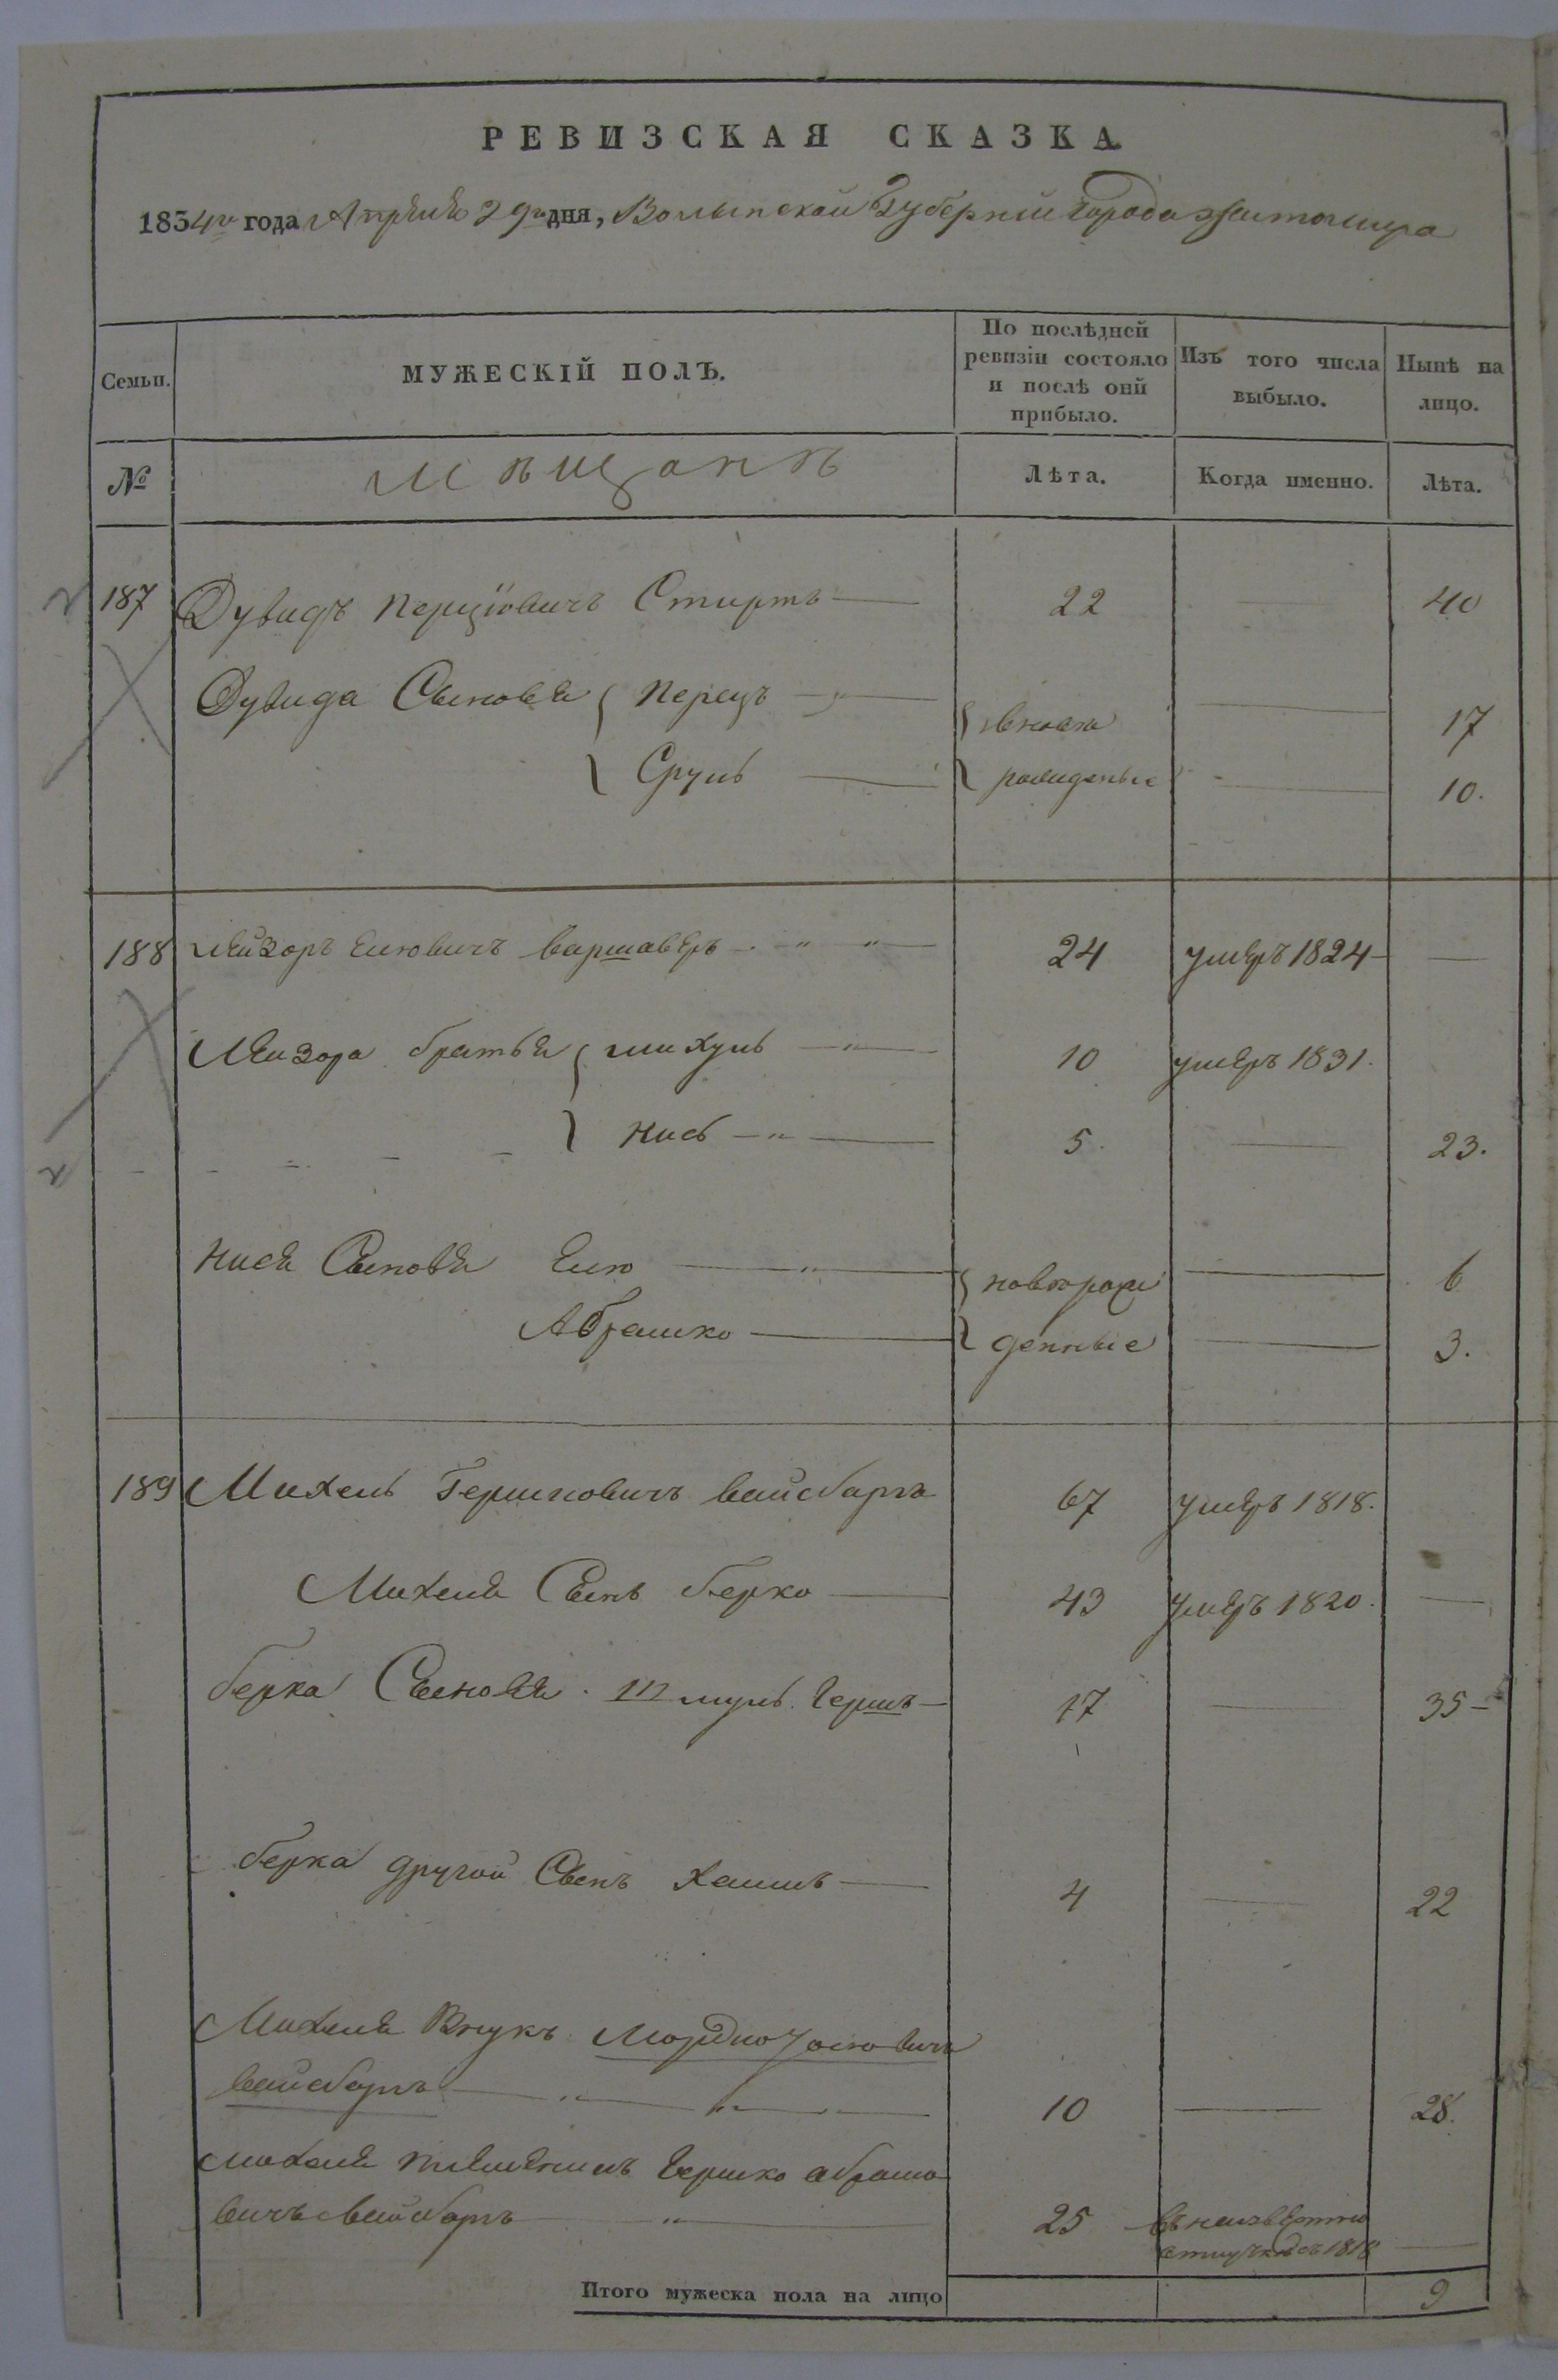 РЕВИЗСКАЯ СКАЗКА
1834го года Апреля 29го дня, Волынской Губернии города Житомира
Семьи.
МУЖЕСКІЙ ПОЛЪ.
По послѣдней ревизіи состояло и послѣ оній прибыло.
Изъ того числа выбыло.
Нынѣ на лицо.
№
Мѣщанъ
Лѣта.
Когда именно.
Лѣта.
187 Дувидъ Перцiовичъ Стиртъ 22 40
Дувида Сыновья Перецъ 17
Сруль рожденые 10.
188 Лейзоръ Елiовичъ Варшаверъ 24 умеръ 1824
Лейзора братья Михуль 10 умеръ 1831.
Нись 5. 23.
Нися Сыновья Елio новорож 6
Абрашко денные 3.
189 Михель Гершковичъ Вайсбаргъ 67 умеръ 1818.
Михеля Сынъ Берко 43 умеръ 1820.
Берка Сыновья. Шмуль. Гершъ 17 35
Берка другой Сынъ Хаимъ 4 22
Михеля Внукъ Мордко
Вайсбаргъ 10 28.
Михеля племянникъ Гершко Абрамо
вичъ Вайсбаргъ 25 въ неизвестной
отлучке съ 1818
Итого мужеска пола на лицо 9